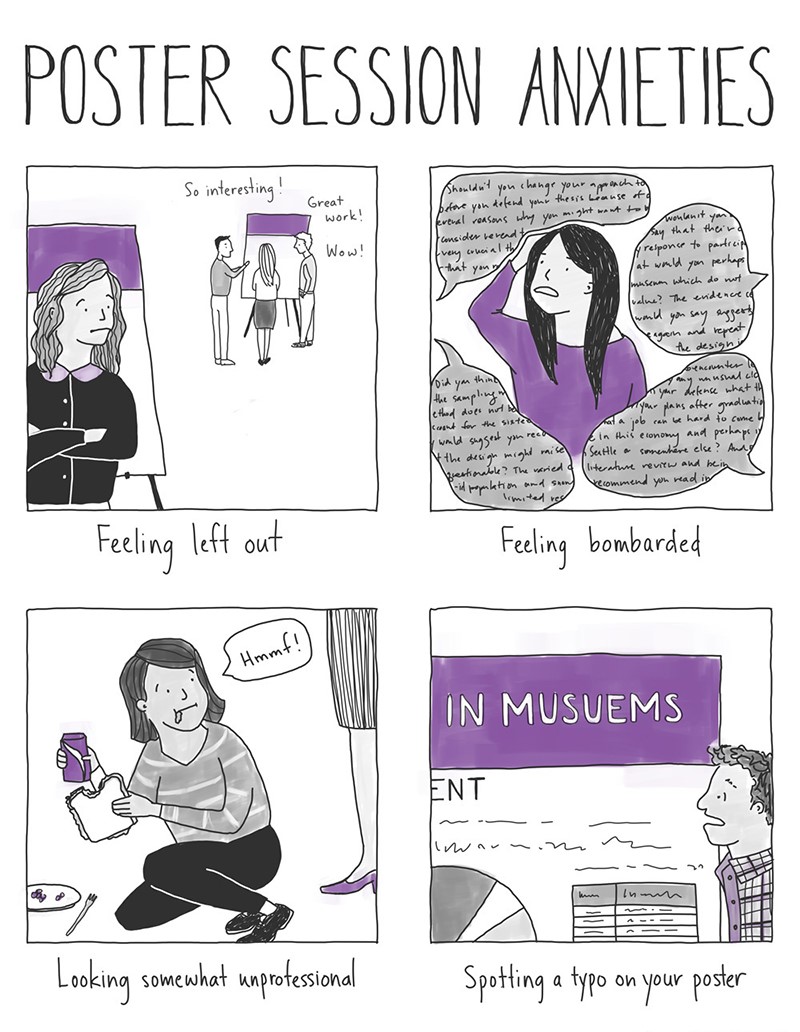 POSTER SESSION ANXIETIES
So interesting!
Great
work!
Wow!
Feeling left out
Shouldn't you change your approach to
before you defend your thesis because of
several reasons why you might want to
consider
very crucial th
that you
wouldn't you
say that their
response to particip
at would you perhaps
museum which do not
value? The evidence
would you say suggest
again and repeat
the design i
Did you think
the sampling
ethod does not
count for the sixte
would suggest you reco
the design might raise
questionable? The varied
population and
limited rec
encounter
any unusual
your defense what th
your plans after graduatio
hat a job can be hard to come b
in this economy and perhaps
Seattle or somewhere else? And
literature review and
recommend you read in
Feeling bombarded
Hmmf!
Looking somewhat unprofessional
IN MUSUEMS
ENT
Spotting a typo on your poster